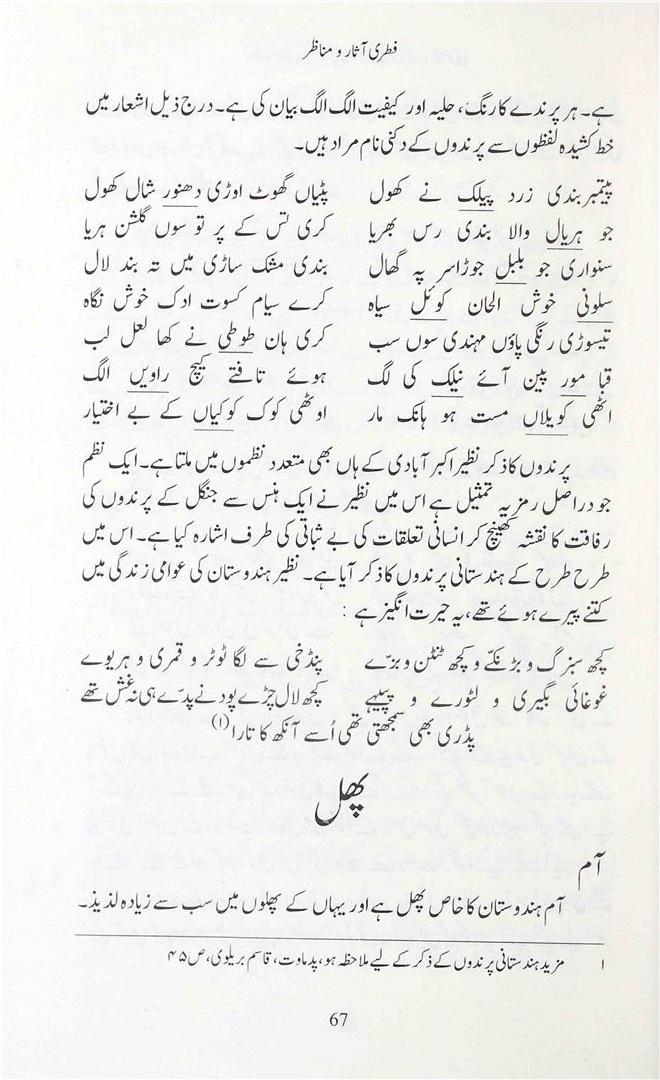 فطری آثار و مناظر
ہے۔ ہر پرندے کا رنگ، حلیہ اور کیفیت الگ الگ بیان کی ہے۔ درج ذیل اشعار میں
خط کشیدہ لفظوں سے پرندوں کے دکنی نام مراد ہیں۔
پیتمبر بندی زرد پیلک نے کھول پٹیاں گھوٹ اوڑی دھنور شال کھول
جو ہریال والا بندی رس بھریا کری تس کے پر تو سوں گلشن ہریا
سنواری جو بلبل جوڑا سر پہ گھال بندی مشک ساڑی میں تہ بند لال
سلونی خوش الحان کوئل سیاہ کرے سیام کسوت ادک خوش نگاہ
تیسوڑی رنگی پاؤں مہندی سوں سب کری ہان طوطی نے کھا لعل لب
قبا مور پین آئے نیلک کی لگ ہوئے تافتے کیچ راویں الگ
اٹھی کویلاں مست ہو ہانک مار اوٹھی کوک کوکیاں کے بے اختیار
پرندوں کا ذکر نظیر اکبر آبادی کے ہاں بھی متعدد نظموں میں ملتا ہے۔ ایک نظم
جو دراصل رمزیہ تمثیل ہے اس میں نظیر نے ایک ہنس سے جنگل کے پرندوں کی
رفاقت کا نقشہ کھینچ کر انسانی تعلقات کی بے ثباتی کی طرف اشارہ کیا ہے۔ اس میں
طرح طرح کے ہندستانی پرندوں کا ذکر آیا ہے۔ نظیر ہندوستان کی عوامی زندگی میں
کتنے پیرے ہوئے تھے، یہ حیرت انگیز ہے :
کچھ سبزگ و بڑنکے و کچھ ٹنٹن و بزے پنڈخی سے لگا ٹوٹر و قمری و ہریوے
غوغائی بگیری و لٹورے و پپیہے کچھ لال چڑے پودنے پدے ہی نہ غش تھے
پڈری بھی سمجھتی تھی اُسے آنکھ کا تارا (۱)
پھل
آم
آم ہندوستان کا خاص پھل ہے اور یہاں کے پھلوں میں سب سے زیادہ لذیذ۔
۱ مزید ہندستانی پرندوں کے ذکر کے لیے ملاحظہ ہو، پدماوت، قاسم بریلوی، ص ۴۵
67